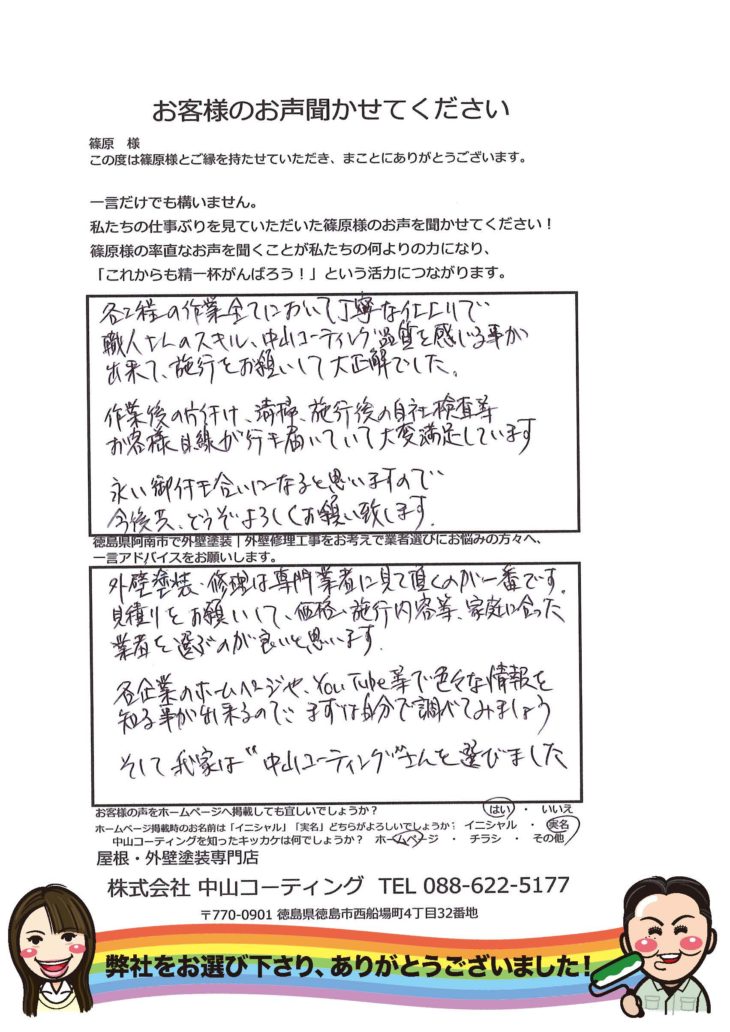 お客様のお声聞かせてください
篠原　様
この度は篠原様とご縁を持たせていただき、まことにありがとうございます。
一言だけでも構いません。
私たちの仕事ぶりを見ていただいた篠原様のお声を聞かせてください！
篠原様の率直なお声を聞くことが私たちの何よりの力になり、
「これからも精一杯がんばろう！」という活力につながります。
各工程の作業全てにおいて丁寧な仕上りで
職人さんのスキル、中山コーティング品質を感じる事が
出来て、施行をお願いして大正解でした。
作業後の片付け、清掃、施行後の自社検査等
お客様目線が行き届いていて大変満足しています
永い御付き合いになると思いますので
今後共、どうぞよろしくお願い致します.
徳島県阿南市で外壁塗装｜外壁修理工事をお考えで業者選びにお悩みの方々へ、
一言アドバイスをお願いします。
外壁塗装、修理は専門業者に見て頂くのが一番です。
見積りをお願いして、価格、施行内容等、家庭に合った
業者を選ぶのが良いと思います.
各企業のホームページや、YouTube等で色々な情報を
知る事が出来るので、まずは自分で調べてみましょう
そして我家は“中山コーティング”さんを選びました
お客様の声をホームページへ掲載しても宜しいでしょうか？　はい ・ いいえ
ホームページ掲載時のお名前は「イニシャル」「実名」どちらがよろしいでしょうか？ イニシャル ・ 実名
中山コーティングを知ったキッカケは何でしょうか？　ホームページ ・ チラシ ・ その他
屋根・外壁塗装専門店
株式会社 中山コーティング TEL 088-622-5177
〒770-0901 徳島県徳島市西船場町4丁目32番地
弊社をお選び下さり、ありがとうございました！